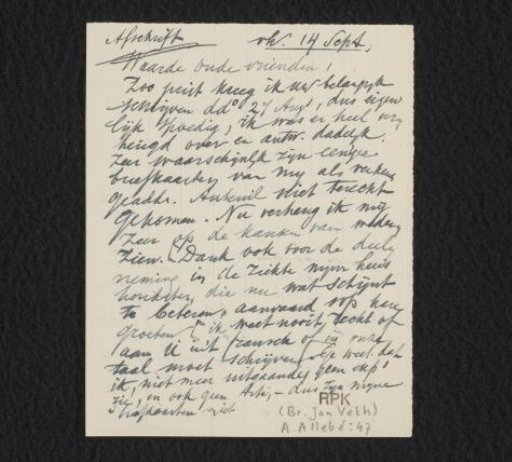 Afschrift
14 Sept.
Waarde oude vrienden!
Zoo juist kreeg ik uw belangrijk
schrijven dd° 27 Aug!, dus eigen
lijk spoedig, ik was er heel ver
heugd over en antw. dadelijk.
Zeer waarschijnlijk zijn eenige
briefkaarten van mij als verkeerd
geaddr. Auteuil niet terecht
gekomen. Nu verheug ik mij
zeer op de kansen van weder
zien. Dank ook voor de deel
neming in de ziekte mijner huis
houdster, die nu wat schijnt
te beteren, aanvaard ook hare
groeten! ik weet nooit recht of
aan U uit fransch of in onze
taal moet schrijven. Je weet dat
ik, niet meer uitgaande, geen exp!
zie, en ook geen Arti, – dus zijn mijne
briefkaarten niet
RPK
(Br. Jan Veth)
A. Allebé: 47